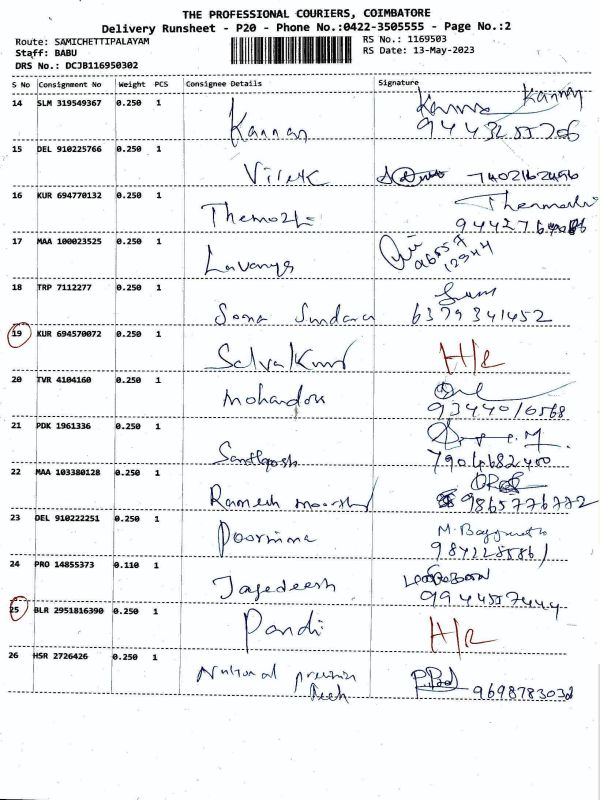 THE PROFESSIONAL COURIERS, COIMBATORE
Delivery Runsheet - P20 - Phone No.:0422-3505555 - Page No.:2
Route: SAMICHETTIPALAYAM
RS No.: 1169503
Staff: BABU
RS Date: 13-May-2023
DRS No.: DCJB116950302
S No Consignment No Weight PCS Consignee Details Signature
14 SLM 319549367 0.250 1 Kannan Kannan
15 DEL 910225766 0.250 1 Vivek
16 KUR 694770132 0.250 1
17 MAA 100023525 0.250 1 Lavanya
12344
18 TRP 7112277 0.250 1 Sona Sundara
6379341452
19 KUR 694570072 0.250 1 H/R
20 TVR 4104160 0.250 1
9344010568
21 PDK 1961336 0.250 1 Santhosh
7904682400
22 MAA 103380128 0.250 1 Ramesh
9865776772
23 DEL 910222251 0.250 1 Poornima
24 PRO 14855373 0.110 1 Jagedeesh
9944557444
25 BLR 2951816390 0.250 1 Pandi H/R
26 HSR 2726426 0.250 1 National precision
Tech 9698783032